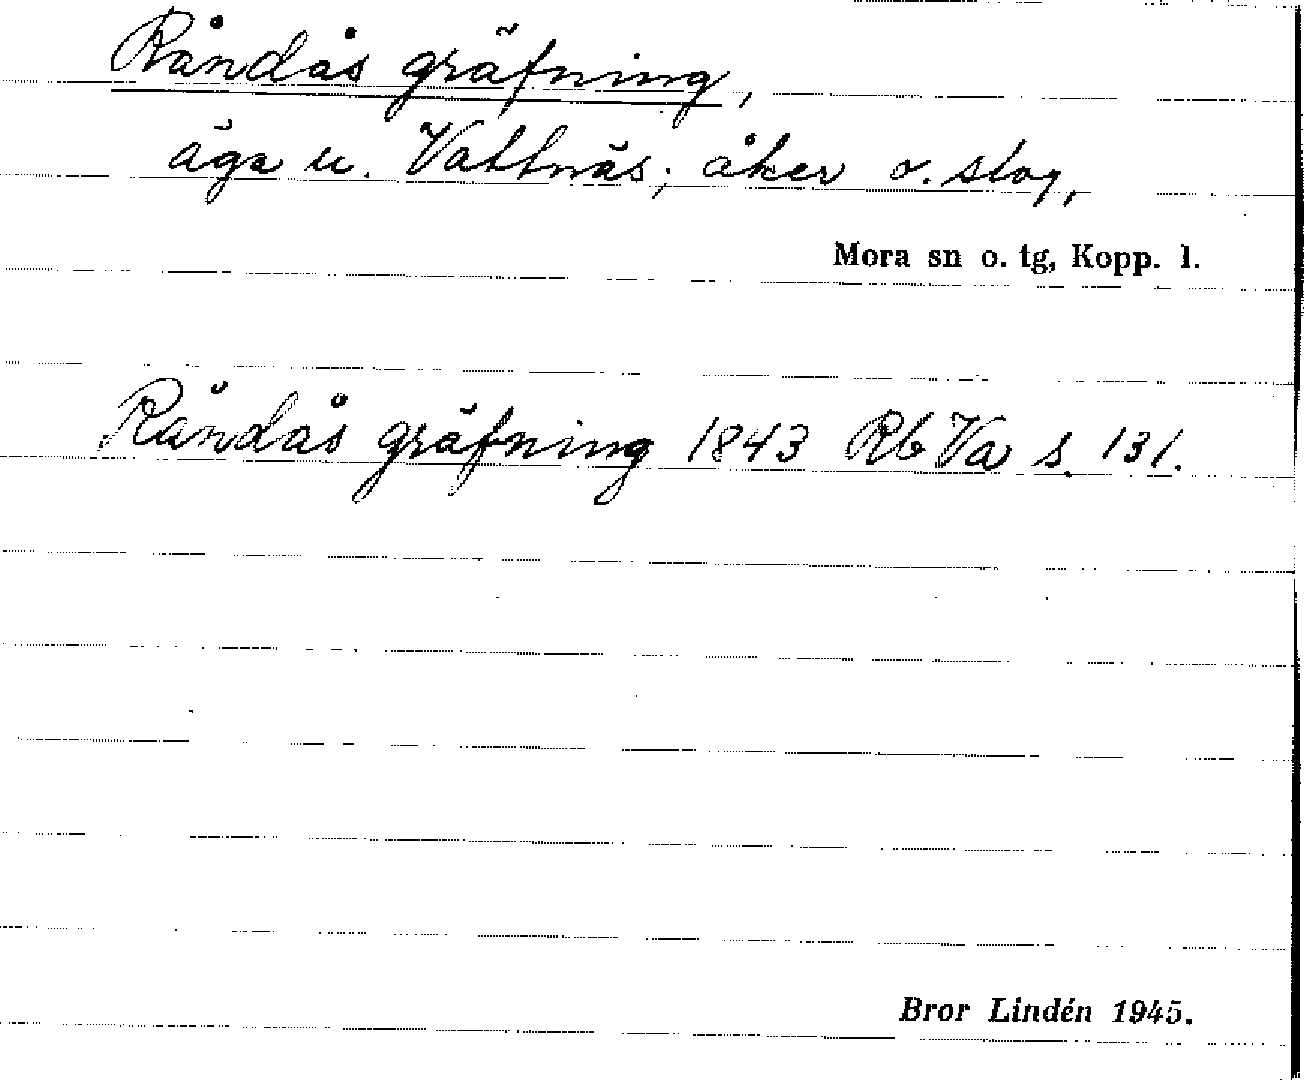 Råndås gräfning,
äga u. Vattnäs; åker o. slog,
Mora sn o. tg, Kopp. l.
Råndås gräfning 1843 Rb Va s. 131.
Bror Lindén 1945.